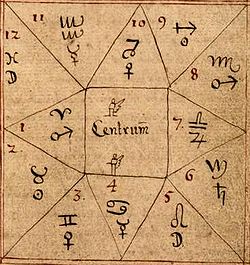 11 10 9
12
♓ ♑ 8
D ♀ ♏
♂
♈
1 ♂ Centrum 7. ♎
2
6
♉ ♄
☉ 3. 4 5
♊ ♋ ♌
D